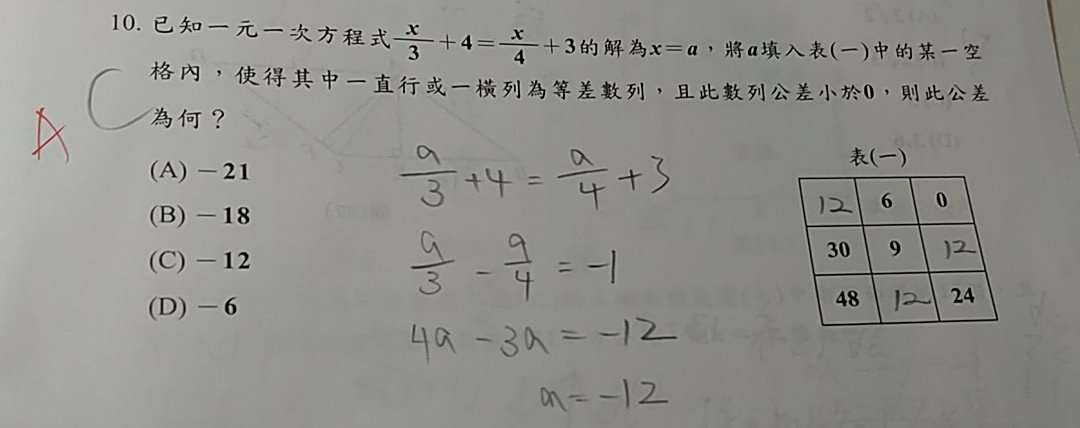 10. 已知一元一次方程式x/3+4=x/4+3的解為x=a，將a填入表(一)中的某一空
格內，使得其中一直行或一橫列為等差數列，且此數列公差小於0，則此公差
為何？
C
A
(A) －21
(B) －18
(C) －12
(D) －6
a/3+4=a/4+3
a/3-a/4=-1
4a-3a=-12
a=-12
表(一)
12 6 0
30 9 12
48 12 24